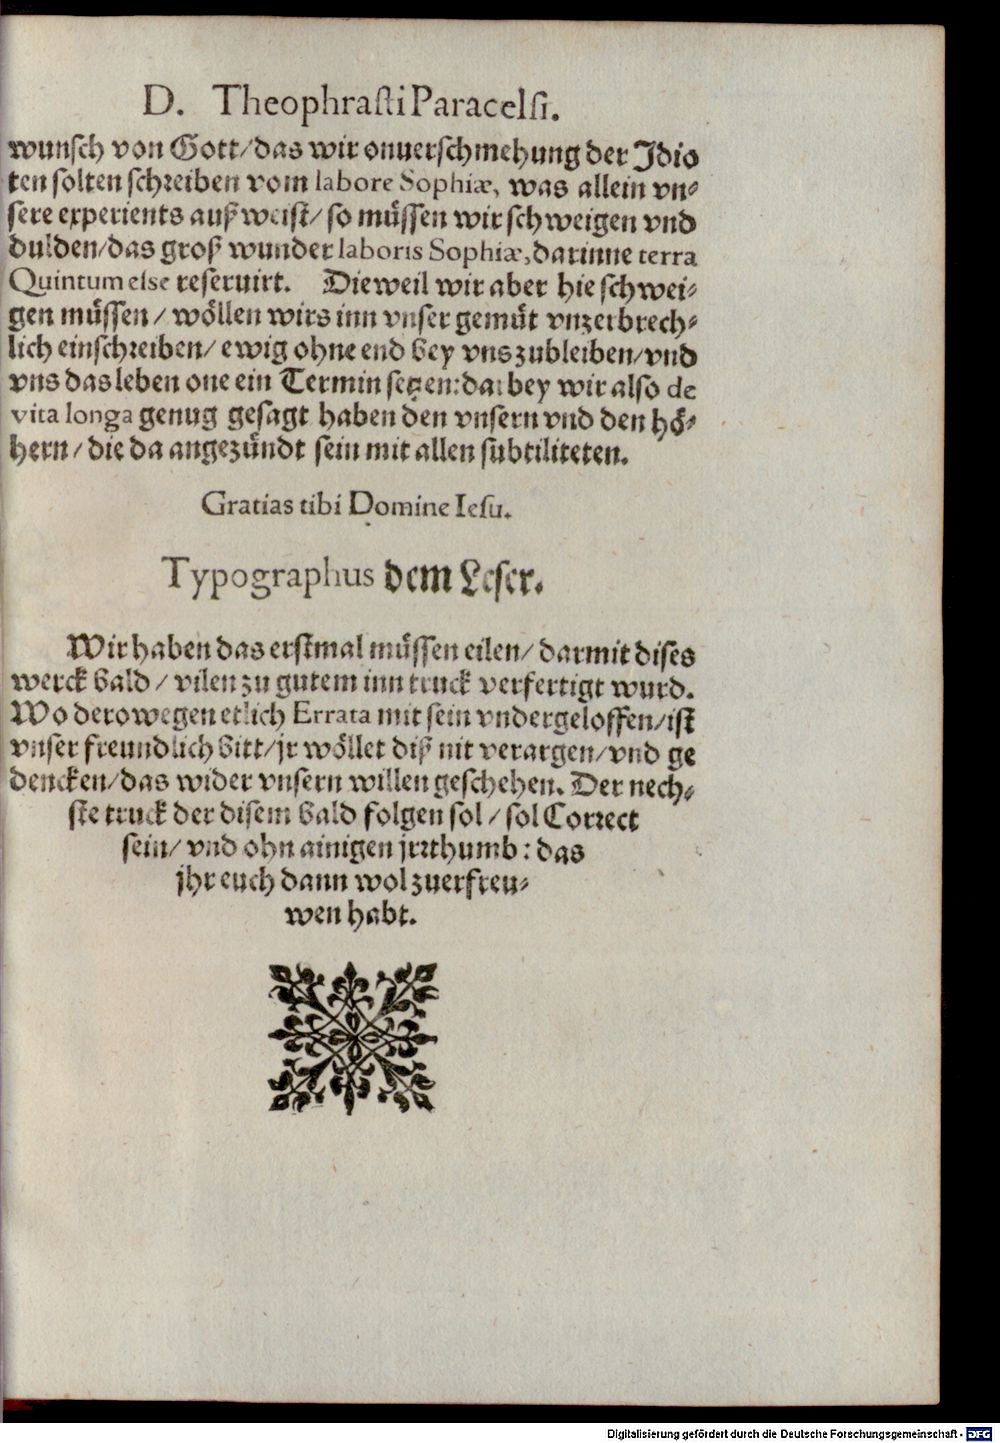 D. Theophraſti Paracelſi.
wunſch von Gott/das wir onuerſchmehung der Jdio
ten ſolten ſchreiben vom labore Sophiæ, was allein vn⸗
ſere experients auß weiſt/ ſo müſſen wir ſchweigen vnd
dulden/das groß wunder laboris Sophiæ,darinne terra
Quintum else reſeruirt. Dieweil wir aber hie ſchwei⸗
gen müſſen / wöllen wirs inn vnſer gemüt vnzerbrech⸗
lich einſchreiben/ ewig ohne end bey vns zubleiben/vnd
vns das leben one ein Termin ſetzen:darbey wir alſo de
vita longa genug geſagt haben den vnſern vnd den hö⸗
hern/ die da angezündt ſein mit allen ſubtiliteten.
Gratias tibi Domine Ieſu.
Typographus dem Leſer.
Wir haben das erſtmal müſſen eilen/ darmit diſes
werck bald / vilen zu gutem inn truck verfertigt wurd.
Wo derowegen etlich Errata mit ſein vndergeloffen/iſt
vnſer freundlich bitt/ jr wöllet diß nit verargen/vnd ge
dencken/das wider vnſern willen geſchehen. Der nech⸗
ſte truck der diſem bald folgen ſol / ſol Correct
ſein/ vnd ohn ainigen jrꝛthumb : das
jhr euch dann wol zuerfreu⸗
wen habt.
Digitalisierung gefördert durch die Deutsche Forschungsgemeinschaft - DFG